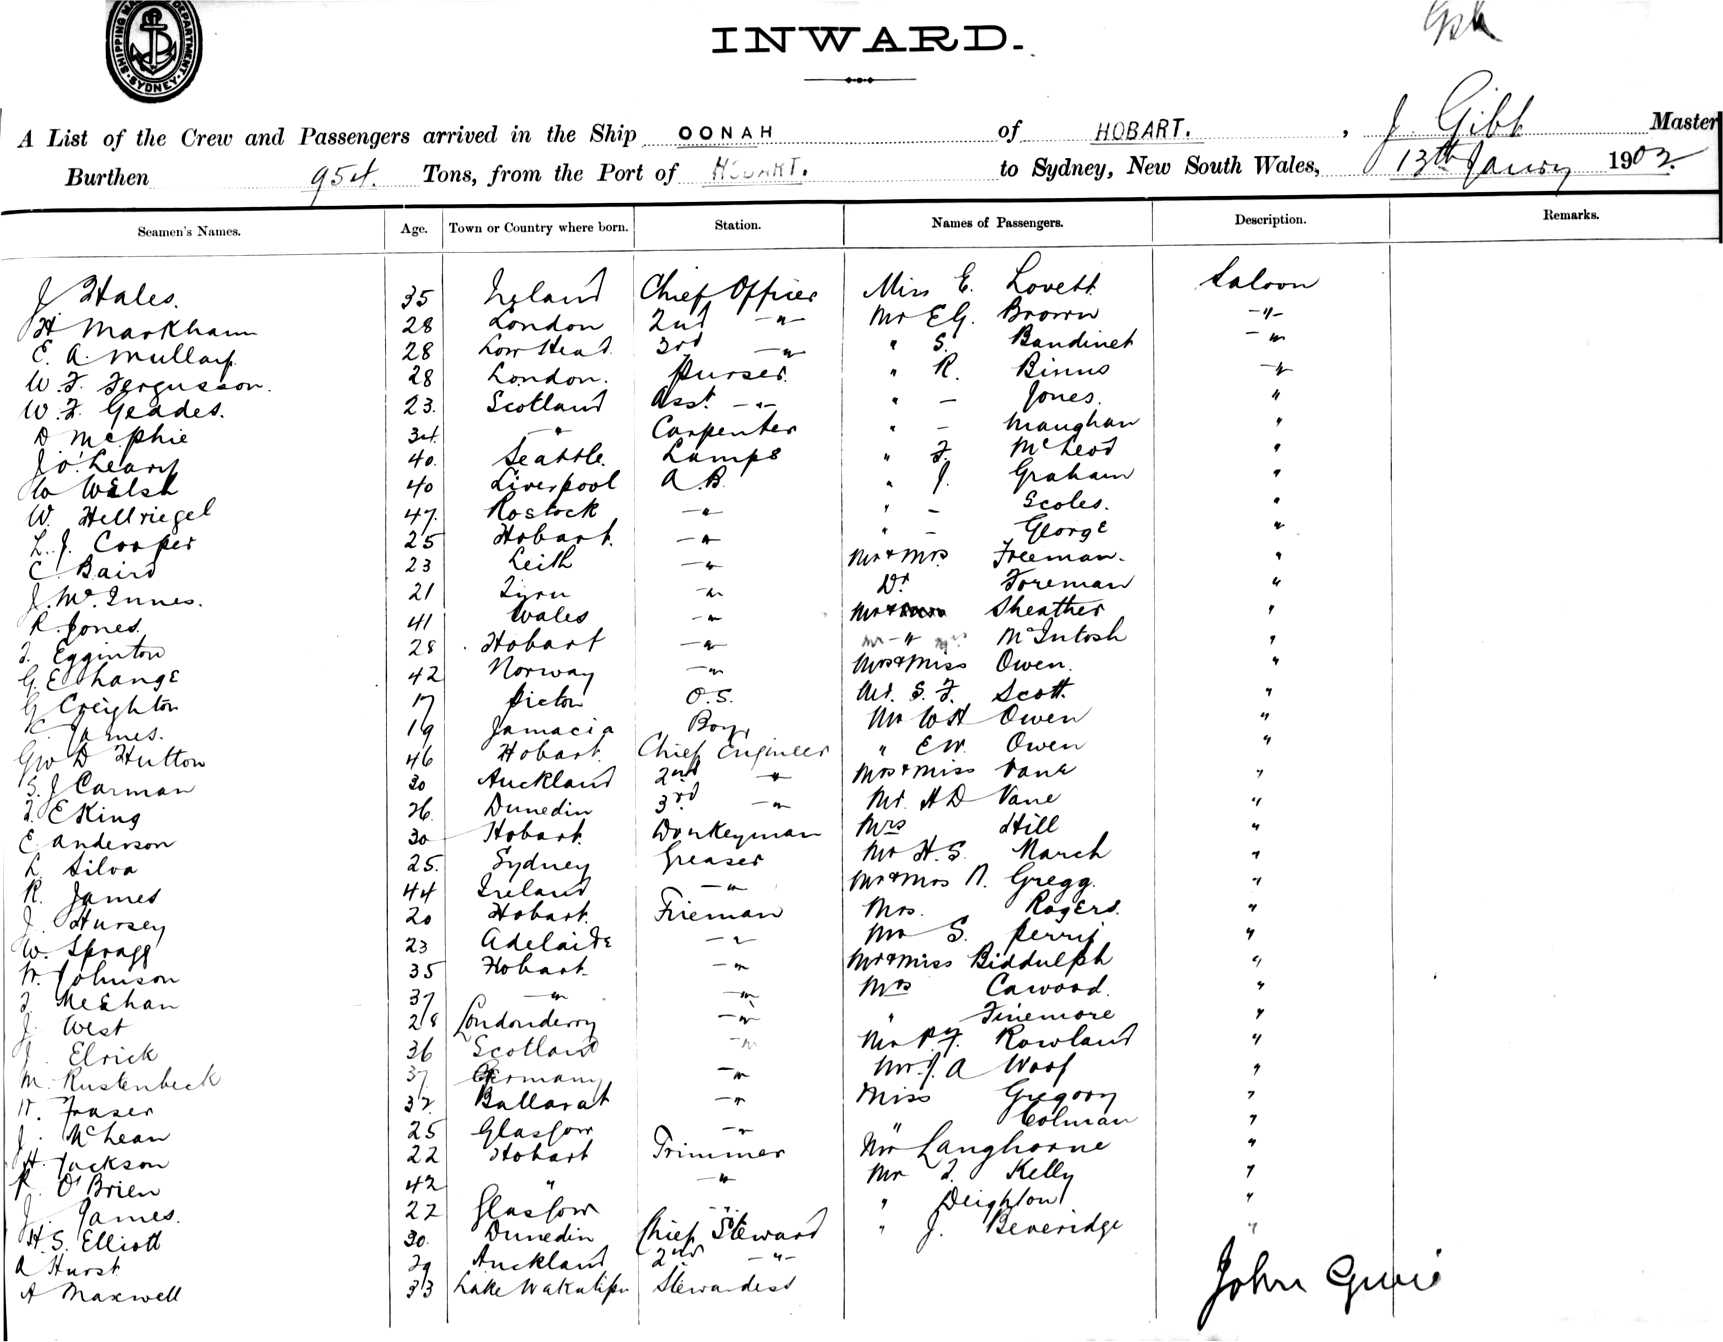 SHIPPING MASTER'S DEPARTMENT. SYDNEY
INWARD.
A List of the Crew and Passengers arrived in the Ship OONAH of HOBART. , J. Gibb Master
Burthen 954. Tons, from the Port of HOBART. to Sydney, New South Wales, 13th Janury 1902.
Seamen's Names. Age. Town or Country where born. Station. Names of Passengers. Description. Remarks.
J Hales. 35 Ireland Chief Officer Miss E. Lovett Saloon
H Markham 28 London 2nd -"- Mr EG. Brown -"-
E. A. Mullay 28 Low Head 3rd -"- " S. Bandinet -"
W. F. Fergusson. 28 London. Purser. " R. Binns -"-
W. F. Geades. 23. Scotland Asst. -"- " - Jones. "
D McPhie 34. -"- Carpenter " - Maughan "
J O'Leary 40. Seattle. Lamps " F. McLeod "
W Welsh 40 Liverpool A.B. " J. Graham "
W. Hellriegel 47. Rostock -"- " - Scoles. "
L. J. Cooper 25 Hobart. -"- " - George "
C. Baird 23 Leith -"- Mr & Mrs Freeman. "
J. McInnes. 21 -"- Dr. Foreman "
R. Jones. 41 Wales -"- Mr & Sheather "
F. Egginton 28 Hobart -"- Mr -"- McIntosh "
G. E 42 Norway -"- Mrs & Miss Owen. "
G Creighton 17 Picton O.S. S. F. Scott. "
K. James. 19 Jamacia Boy, Mr WH Owen "
GW D Hutton 46 Hobart. Chief Engineer " EW. Owen "
S. J Carman 30 Auckland 2nd " Mrs & Miss Vane "
F. E King 26. Dunedin 3rd -"- Mr. A D Vane "
E Anderson 30 Hobart. Donkeyman Mrs Hill "
L. Silva 25. Sydney Greaser Mr H. S. March "
R. James 44 Ireland -"- Mr & Mrs N. Gregg. "
J. Hursey 20 Hobart. Fireman Mrs. Rogers. "
W. Spragg 23 Adelaide -"- Mr S. Perrij "
W. Johnson 35 Hobart -"- Mr & Miss Biddulph "
F Meehan 37 -"- -"- Mrs Cawood. "
J. West 28 Londonderry -"- " Finemore "
J. Elrick 36 Scotland -"- Mr P.F. Rowland "
M. Rustenbeck 37 Germany -"- Mr. J. A Woof "
W. Fraser 32. Ballarat -"- Miss Gregory "
J. McLean 25 Glasgow -"- " Colman "
H. Jackson 22 Hobart Trimmer Mr Langhorne "
R. O'Brien 42 " -"- Mr F. Kelly "
J. James. 22 Glasgow -"- " Deighton "
H. S. Elliott 30. Dunedin Chief Steward " J. Beveridge "
A Hurst 29 Auckland 2nd -"-
A Maxwell 33 Lake Wakatipu Stewardess
John